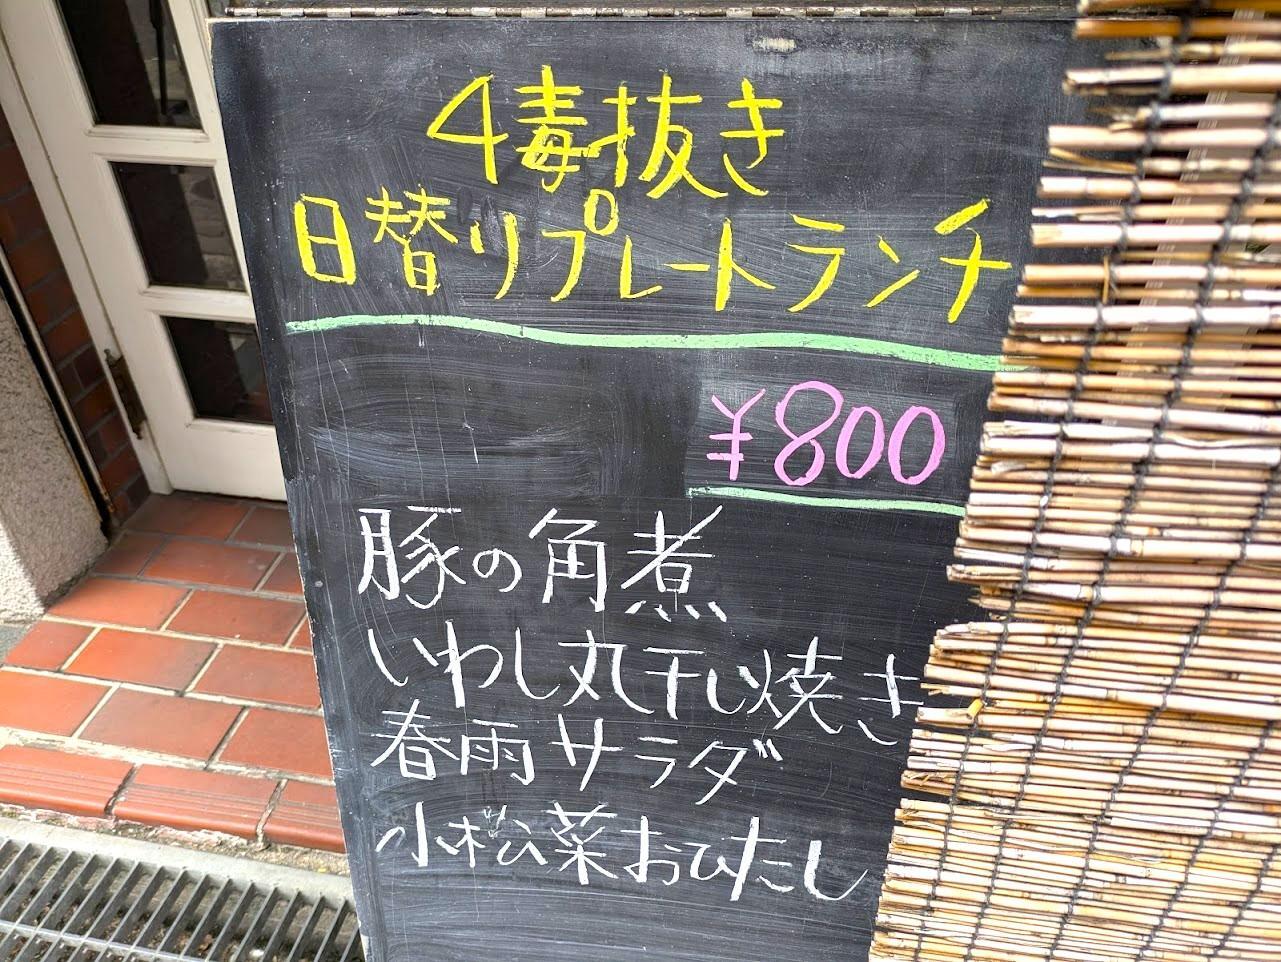 4毒抜き
日替りプレートランチ
¥800
豚の角煮
いわし丸干し焼き
春雨サラダ
小松菜おひたし